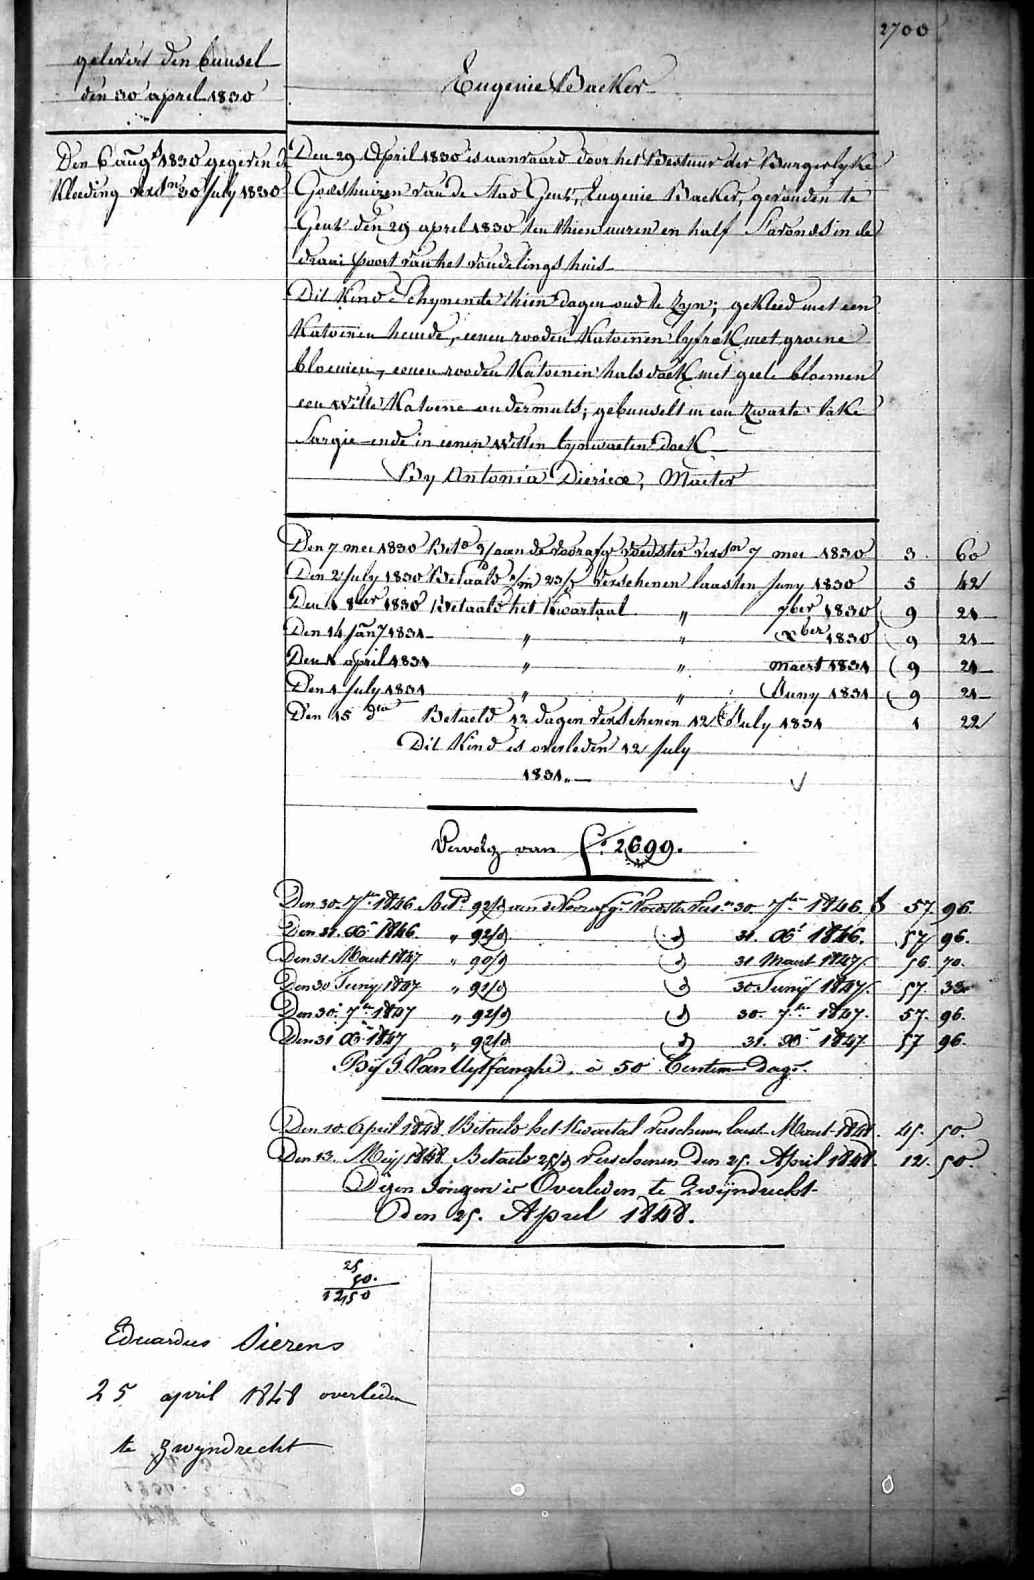 2700
gelevert den bunsel
den 30 april 1830
Eugenie Backer
Den 6 augt 1830 gegeven de
kleeding versn 30 july 1830
Den 29 April 1830 is aanvaard door het Bestuur der Burgerlyke
Godshuizen van de Stad Gent, Eugenie Backer, gevonden te
Gent den 29 april 1830 ten thien uuren en half S'avonds in de
draai poort van het vondelingshuis
Dit Kind Schynende thien dagen oud te zyn; gekleed met een
Katoenen hemde, eenen rooden Katoenen lyfrok met groene
bloemen, eenen rooden Katoenen halsdoek met geele bloemen
een witte Katoene ondermuts; gebunselt in een zwarte
Sargie ende in eenen witten lynwaeten doek
By Antonia Diericx, Maeter
Den 7 mei 1830 Beto 9/ aan de voorafge voedster versn 7 mei 1830 3 60
Den 2 july 1830 Betaald 1/m 23/ verschenen laasten Juny 1830 5 42
Den 1 8ber 1830 Betaald het kwartaal " 7ber 1830 9 21
Den 14 Jany 1831 " " Xber 1830 9 21
Den 1 april 1831 " " maert 1831 9 21
Den 1 July 1831 " " Juny 1831 9 21
Den 15 dito Betaeld 12 dagen verschenen 12 July 1831 1 22
Dit Kind is overleden 12 july
1831 "
Vervolg van f° 2699.
Den 30 7br 1846 Betd 92/d aan de Voorafge Voedster Versn 30. 7br 1846. f 57. 96.
Den 31. Xbr 1846. " 92/d (d) 31. Xbr 1846. 57 96.
Den 31 Maart 1847 " 90/d (d) 31 Maart 1847. 56. 70.
Den 30 Junij 1847 " 91/d (d) 30 Junij 1847. 57. 33
Den 30. 7br 1847 " 92/d (d) 30. 7br 1847. 57. 96.
Den 31 Xbr 1847 " 92/d (d) 31. Xbr 1847. 57 96.
Bij J. Van Uytfanghe, à 50 Centim Dags.
Den 10. April 1848. Betaeld het Kwartal verschenen laast Maart 1848. 45. 50.
Den 13. Meij 1848 Betaeld 25/d verschenen den 25. April 1848. 12. 50.
Dezen Jongen is Overleden te Zwijndrecht
Den 25. April 1848.
25
50.
1250
Eduardus Dierens
25 april 1848 overleden
te Zwyndrecht